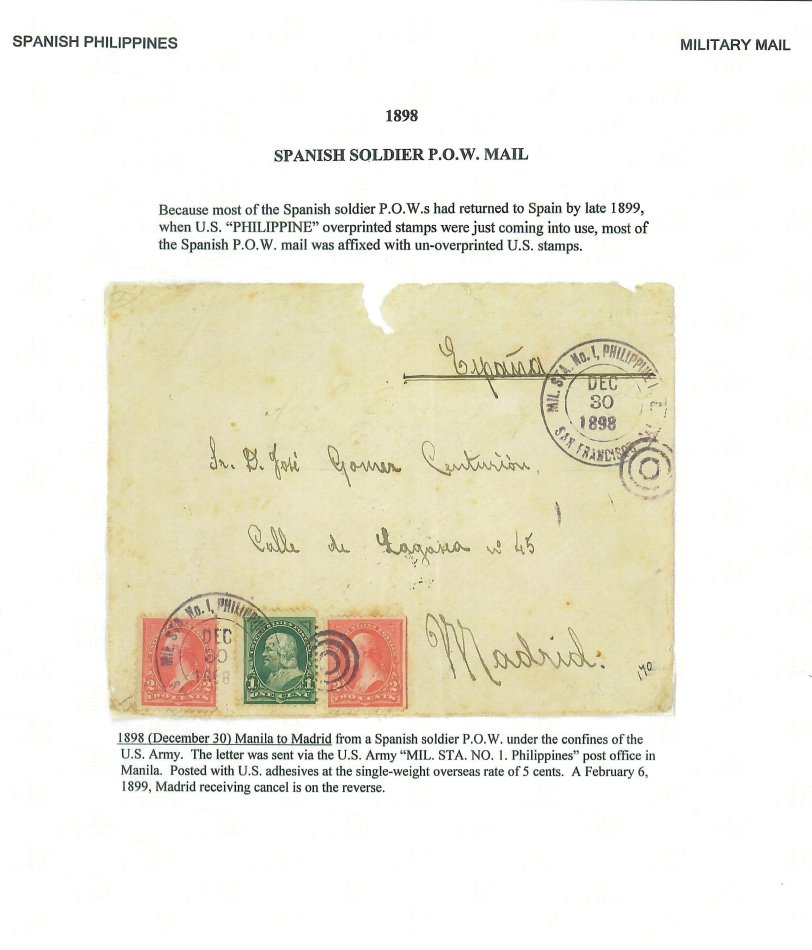 SPANISH PHILIPPINES
MILITARY MAIL
1898
SPANISH SOLDIER P.O.W. MAIL
Because most of the Spanish soldier P.O.W.s had returned to Spain by late 1899,
when U.S. “PHILIPPINE” overprinted stamps were just coming into use, most of
the Spanish P.O.W. mail was affixed with un-overprinted U.S. stamps.
España
MIL. STA. No. 1, PHILIPPINE
DEC
30
1898
SAN FRANCISCO
Sr. D. José Gomez Centurión,
Calle de nº 45
Madrid.
MIL. STA. No. 1, PHILIP
DEC
30
1898
2 TWO CENTS 2
1 ONE CENT 1
2 TWO CENTS 2
1898 (December 30) Manila to Madrid from a Spanish soldier P.O.W. under the confines of the
U.S. Army. The letter was sent via the U.S. Army “MIL. STA. NO. 1. Philippines” post office in
Manila. Posted with U.S. adhesives at the single-weight overseas rate of 5 cents. A February 6,
1899, Madrid receiving cancel is on the reverse.